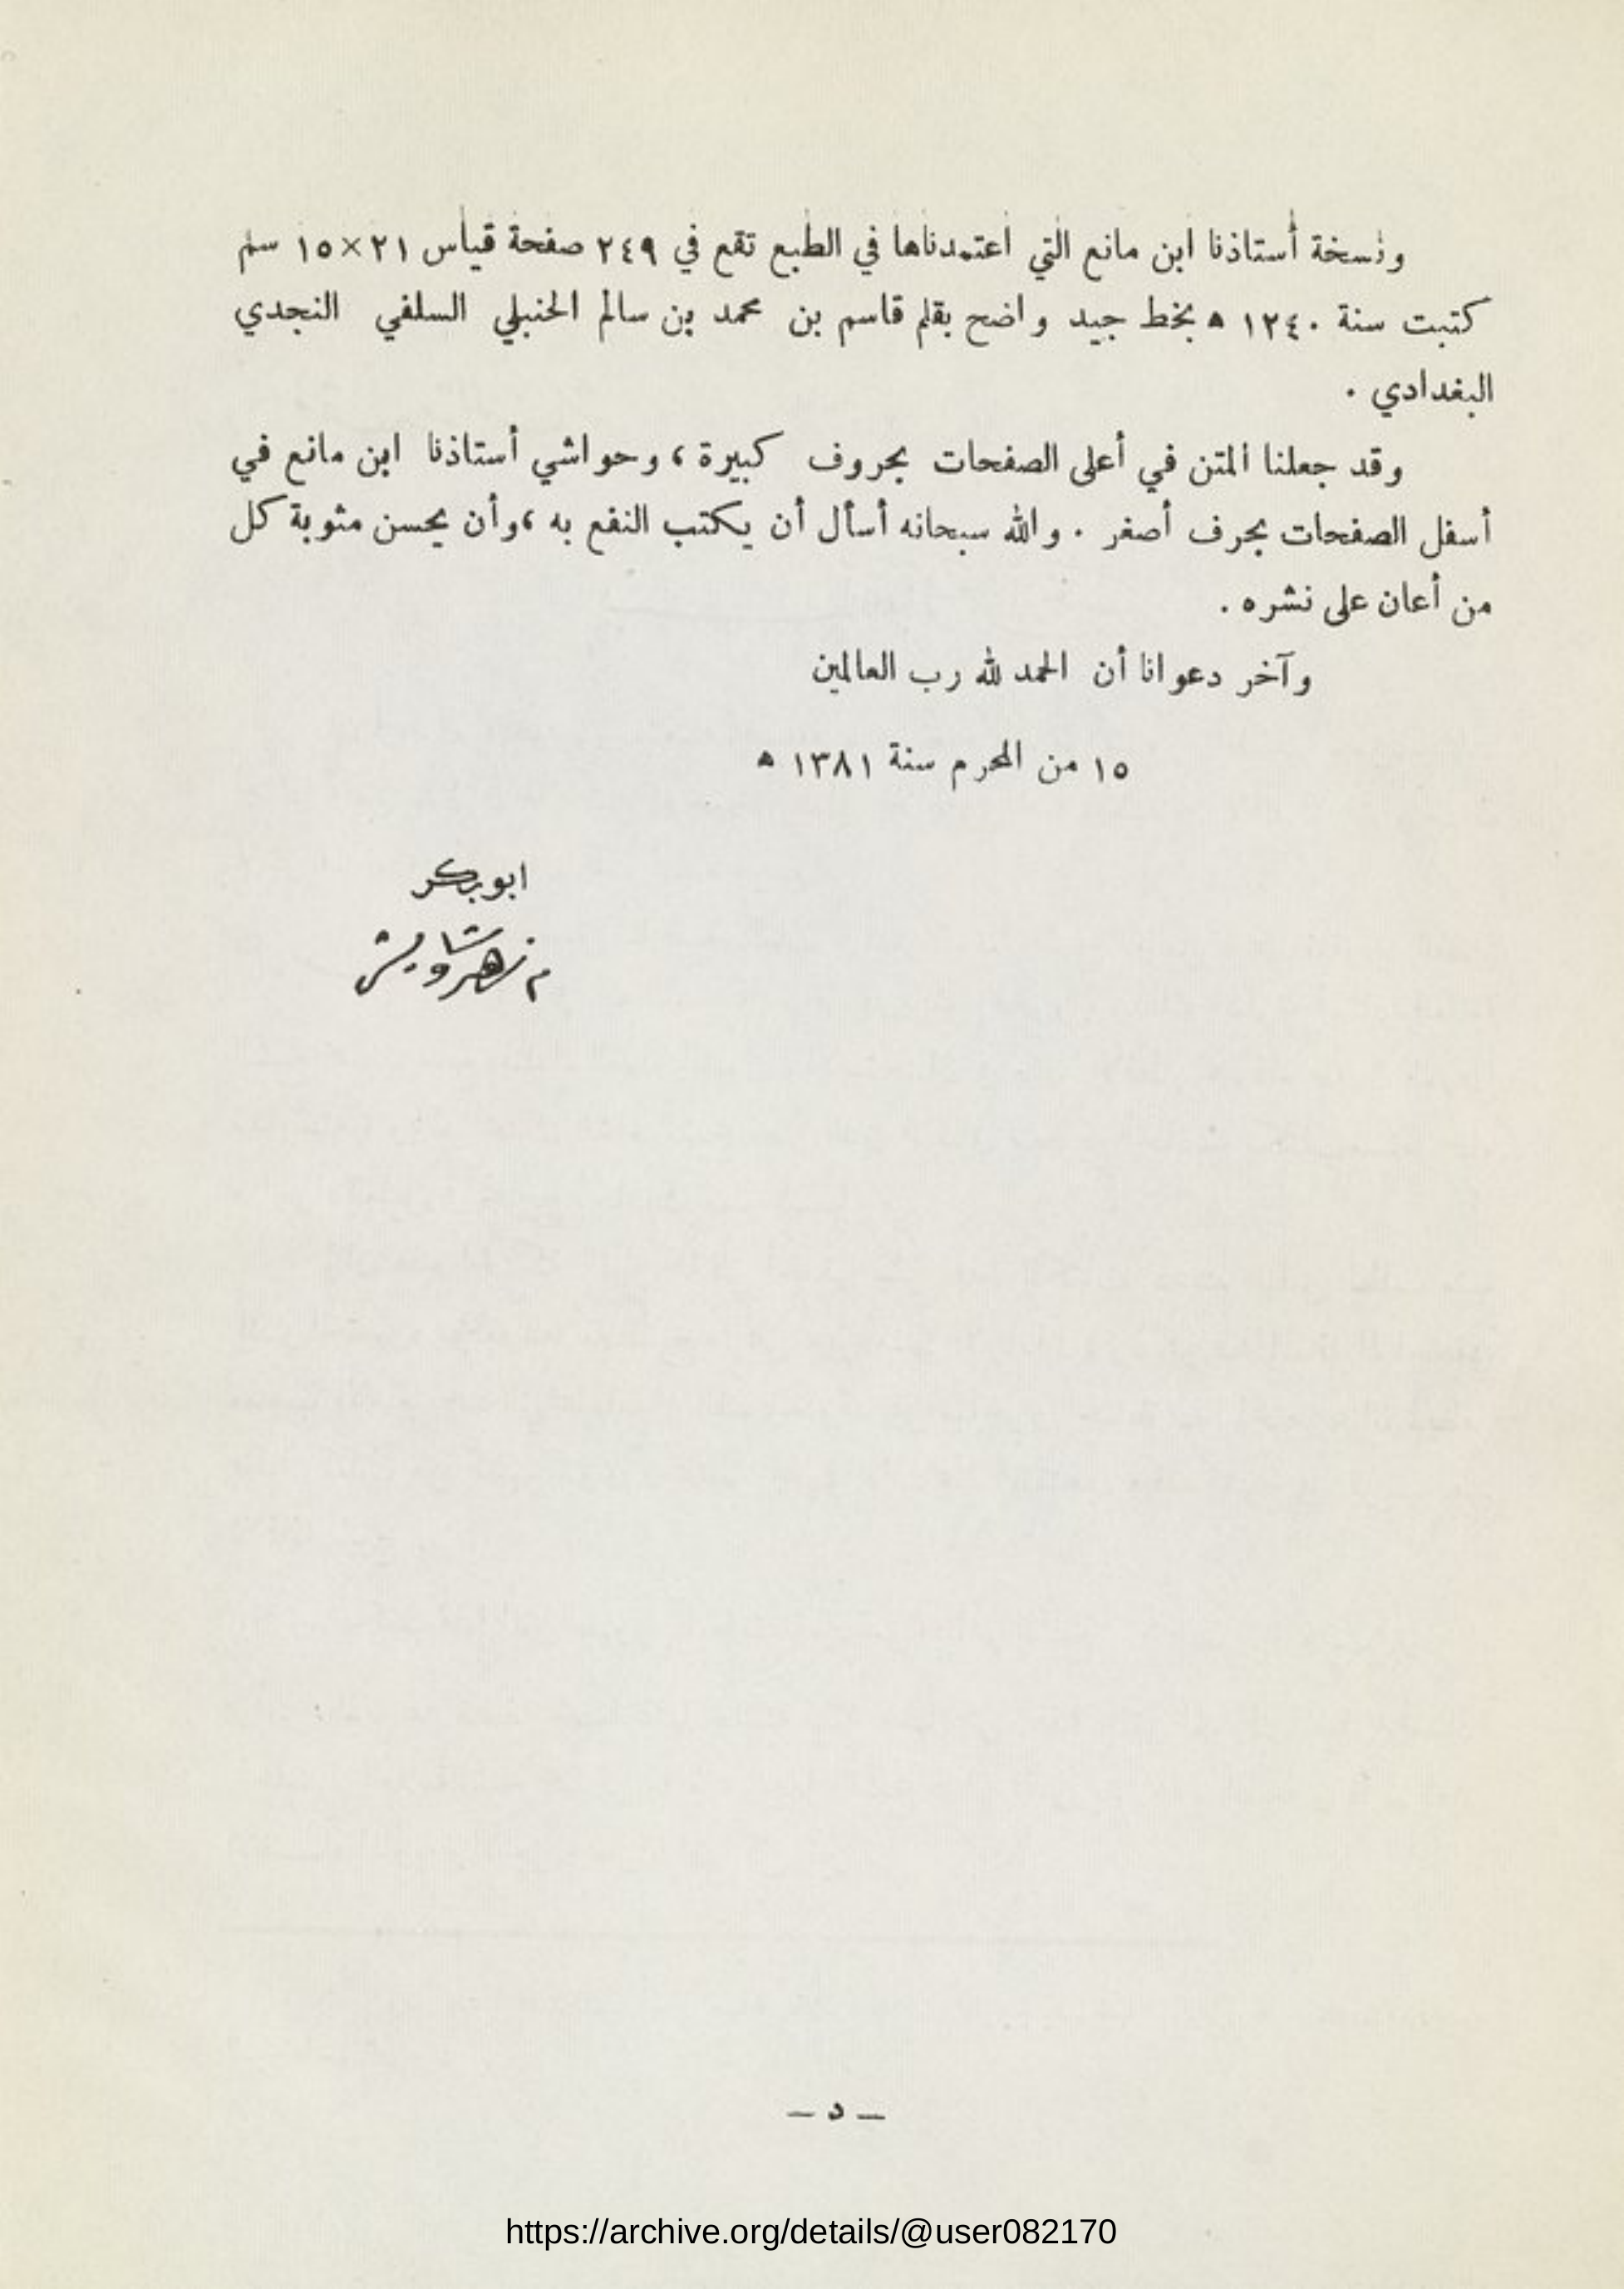 ونسخة أستاذنا ابن مانع التي اعتمدناها في الطبع تقع في ٢٤٩ صفحة قياس ٢١×١٥ سم
كتبت سنة ١٢٤٠ ه بخط جيد واضح بقلم قاسم بن محمد بن سالم الحنبلي السلفي النجدي
البغدادي .
وقد جعلنا المتن في أعلى الصفحات بحروف كبيرة ، وحواشي أستاذنا ابن مانع في
أسفل الصفحات بحرف أصغر . والله سبحانه أسأل أن يكتب النفع به ،وأن يحسن مثوبة كل
من أعان على نشره .
وآخر دعوانا أن الحمد لله رب العالمين
١٥ من المحرم سنة ١٣٨١ ه
ابوبكر
م زهير شاويش
– د –
https://archive.org/details/@user082170